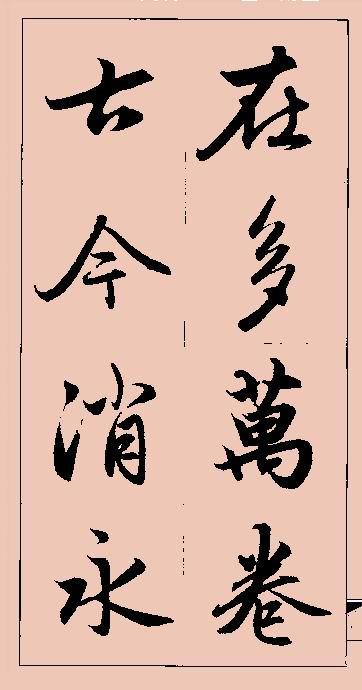 在多萬卷
古今消永